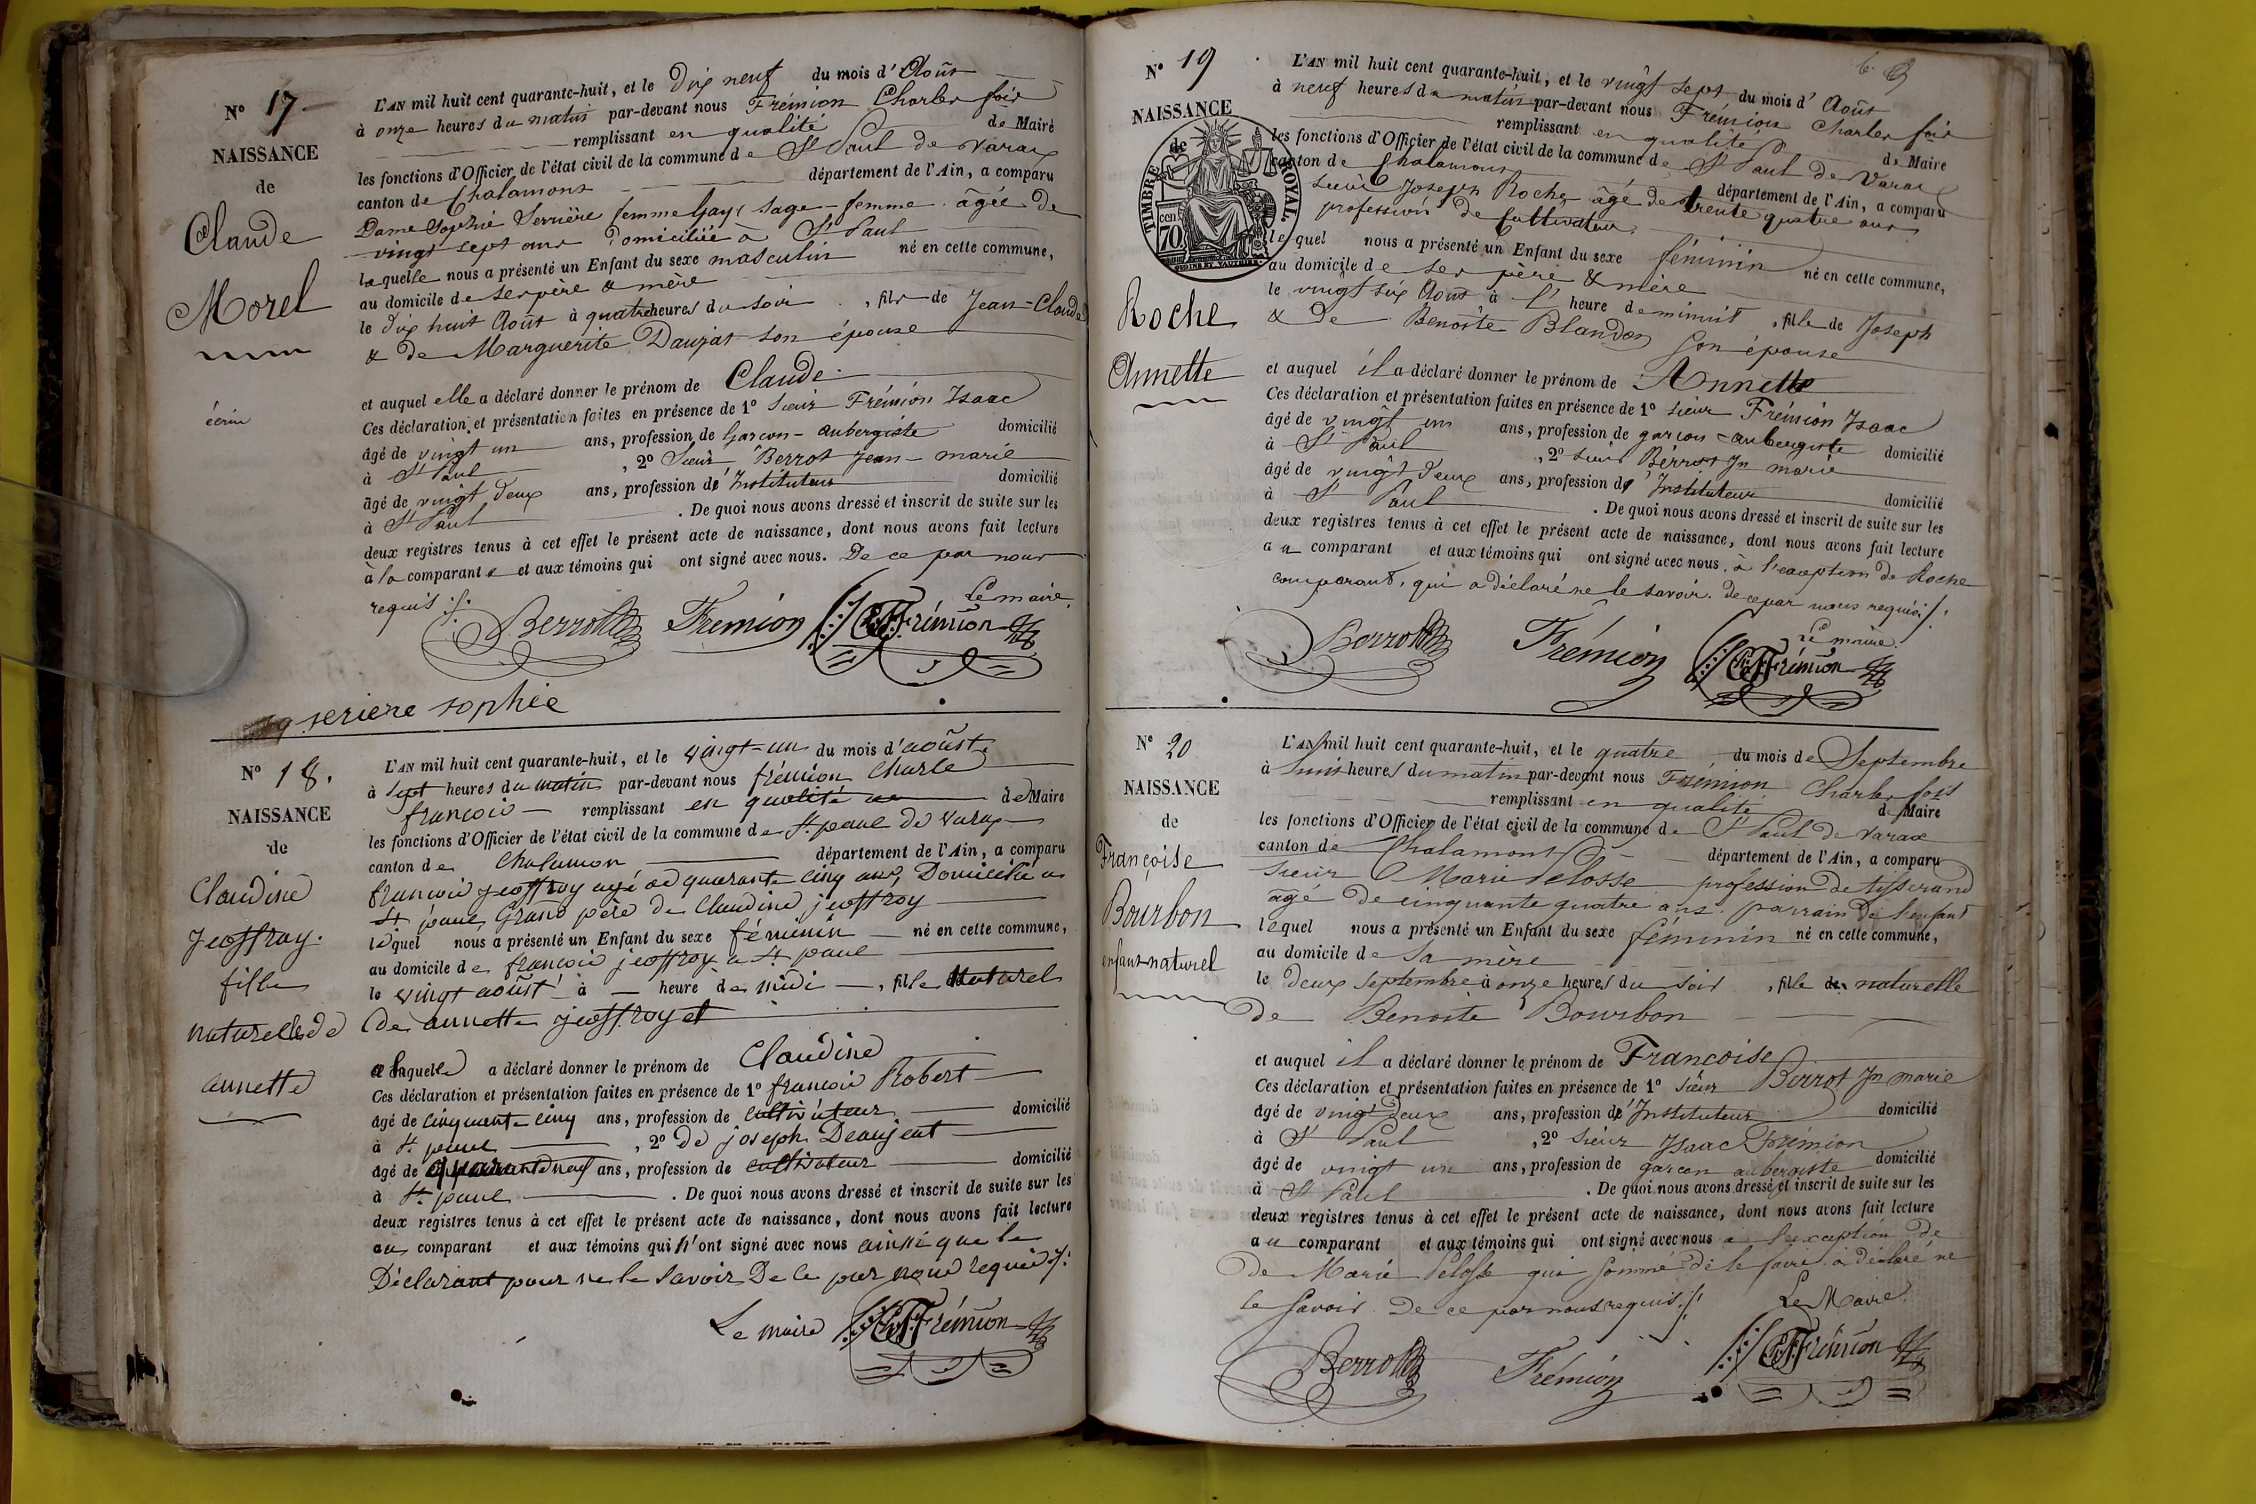 N° 17
NAISSANCE
de
Claude
Morel
L'AN mil huit cent quarante-huit, et le Dix neuf du mois d'Août
à onze heures du matin par-devant nous Frémion Charles fois
remplissant en qualité de Maire
les fonctions d'Officier de l'état civil de la commune de St Paul de Varax
canton de Chalamont département de l'Ain, a comparu
Dame Sophie Serrière femme Gay, sage-femme âgée de
vingt sept ans domiciliée à St Paul
laquelle nous a présenté un Enfant du sexe masculin né en cette commune,
au domicile de ses père & mère
le dix huit Août à quatre heures du soir, fils de Jean-Claude
& de Marguerite Daujat son épouse
et auquel elle a déclaré donner le prénom de Claude
Ces déclaration et présentation faites en présence de 1° Sieur Frémion Isaac
âgé de vingt un ans, profession de Garçon-aubergiste domicilié
à St Paul, 2° Sieur Berrot Jean-marie
âgé de vingt deux ans, profession d'Instituteur domicilié
à St Paul. De quoi nous avons dressé et inscrit de suite sur les
deux registres tenus à cet effet le présent acte de naissance, dont nous avons fait lecture
à la comparante et aux témoins qui ont signé avec nous. De ce par nous
requis ./.
Le maire,
Berrot Frémion CF Frémion
seriere sophie
N° 18.
NAISSANCE
de
Claudine
jeoffray.
fille
naturelle de
annette
L'AN mil huit cent quarante-huit, et le vingt-un du mois d'août
à sept heures du matin par-devant nous frémion Charle
françois remplissant en qualité de Maire
les fonctions d'Officier de l'état civil de la commune de St. paul de varax
canton de Chalamon département de l'Ain, a comparu
françois jeoffroy agé de quarante cinq ans, Domicilié a
St paul, Grand père de Claudine jeoffroy
lequel nous a présenté un Enfant du sexe féminin né en cette commune,
au domicile de françois jeoffroy a St paul
le vingt août à heure de midi, fille Naturel
de annette jeoffroy et
a laquelle a déclaré donner le prénom de Claudine
Ces déclaration et présentation faites en présence de 1° françois Robert
âgé de cinquante cinq ans, profession de cultivateur domicilié
à St. paul, 2° de joseph Deaujeat
âgé de quarante neuf ans, profession de cultivateur domicilié
à St. paul. De quoi nous avons dressé et inscrit de suite sur les
deux registres tenus à cet effet le présent acte de naissance, dont nous avons fait lecture
au comparant et aux témoins qui n'ont signé avec nous ainsi que le
Déclarant pour ne le savoir De ce par nous requis ./.
Le maire CF Frémion
N° 19
NAISSANCE
de
TIMBRE ROYAL
70 cent
Roche
Annette
L'AN mil huit cent quarante-huit, et le vingt sept du mois d'Août
à neuf heures du matin par-devant nous Frémion Charles fois
remplissant en qualité de Maire
les fonctions d'Officier de l'état civil de la commune de St Paul de Varax
canton de Chalamont département de l'Ain, a comparu
Sieur Joseph Roche âgé de trente quatre ans
profession de Cultivateur
lequel nous a présenté un Enfant du sexe féminin né en cette commune,
au domicile de ses père & mère
le vingt six Août à l'heure de minuit, fille de Joseph
& de Benoîte Blandon son épouse
et auquel il a déclaré donner le prénom de Annette
Ces déclaration et présentation faites en présence de 1° Sieur Frémion Isaac
âgé de vingt un ans, profession de garçon-aubergiste domicilié
à St Paul, 2° Sieur Berrot Jn marie
âgé de vingt deux ans, profession d'Instituteur domicilié
à St Paul. De quoi nous avons dressé et inscrit de suite sur les
deux registres tenus à cet effet le présent acte de naissance, dont nous avons fait lecture
au comparant et aux témoins qui ont signé avec nous, à l'exception de Roche
comparant, qui a déclaré ne le savoir. De ce par nous requis ./.
Le maire.
Berrot Frémion CF Frémion
N° 20
NAISSANCE
de
Françoise
Bourbon
enfant naturel
L'AN mil huit cent quarante-huit, et le quatre du mois de Septembre
à huit heures du matin par-devant nous Frémion Charles fois
remplissant en qualité de Maire
les fonctions d'Officier de l'état civil de la commune de St Paul de Varax
canton de Chalamont département de l'Ain, a comparu
Sieur Marie Pelosse profession de tisserand
âgé de cinquante quatre ans. parrain de l'enfant
lequel nous a présenté un Enfant du sexe féminin né en cette commune,
au domicile de sa mère
le deux septembre à onze heures du soir, fille naturelle
de Benoite Bourbon
et auquel il a déclaré donner le prénom de Françoise
Ces déclaration et présentation faites en présence de 1° Sieur Berrot Jn marie
âgé de vingt deux ans, profession d'Instituteur domicilié
à St Paul, 2° Sieur Isaac Frémion
âgé de vingt un ans, profession de garçon aubergiste domicilié
à St Paul. De quoi nous avons dressé et inscrit de suite sur les
deux registres tenus à cet effet le présent acte de naissance, dont nous avons fait lecture
au comparant et aux témoins qui ont signé avec nous a l'exception de
de Marie Pelosse qui sommé de le faire a déclaré ne
le savoir. De ce par nous requis ./.
Le Maire.
Berrot Frémion CF Frémion